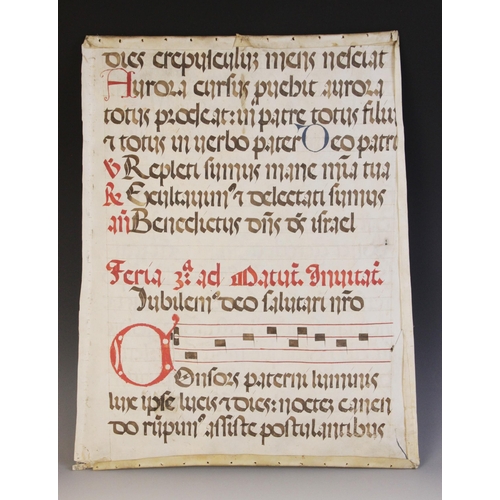 dies crepusculũ mens nesciat
Aurora cursus puehit aurora
totus prodeat: in patre totus filiu
⁊ totus in uerbo pater Deo patri
V Repleti sumus mane mĩa tua
R Exultauimꝰ ⁊ delectati sumus
añ Benedictus dñs ds̃ israel
Feria 3ª ad Matut̃. Inuitat̃.
Iubilemꝰ deo salutari nr̃o
Consors paterni luminis
lux ipse lucis ⁊ dies: noctez canen
do rũpimꝰ assiste postulantibus